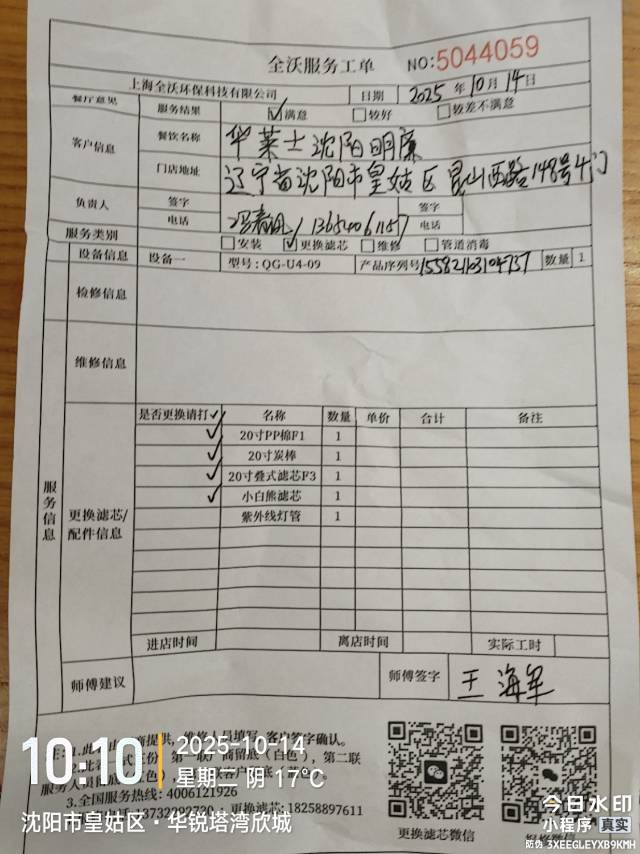 全沃服务工单 NO:5044059
上海全沃环保科技有限公司 日期 2025年10月14日
餐厅意见 服务结果 ☑满意 □较好 □较差不满意
客户信息 餐饮名称 华莱士沈阳明廉
门店地址 辽宁省沈阳市皇姑区昆山西路148号4门
负责人 签字 签字
电话 电话
服务类别 □安装 ☑更换滤芯 □维修 □管道消毒
设备信息 设备一 型号:QG-U4-09 产品序列号 数量 1
检修信息
维修信息
服务信息
更换滤芯/配件信息
是否更换请打✓ 名称 数量 单价 合计 备注
✓ 20寸PP棉F1 1
✓ 20寸炭棒 1
✓ 20寸叠式滤芯F3 1
✓ 小白熊滤芯 1
紫外线灯管 1
进店时间 离店时间 实际工时
师傅建议 师傅签字 王海军
客户签字确认。
第二联
3.全国服务热线:4006121926
更换滤芯:18258897611
更换滤芯微信
10:10 2025-10-14
星期二 阴 17℃
沈阳市皇姑区·华锐塔湾欣城
今日水印
小程序 真实
防伪 3XEEGLEYXB9KMH